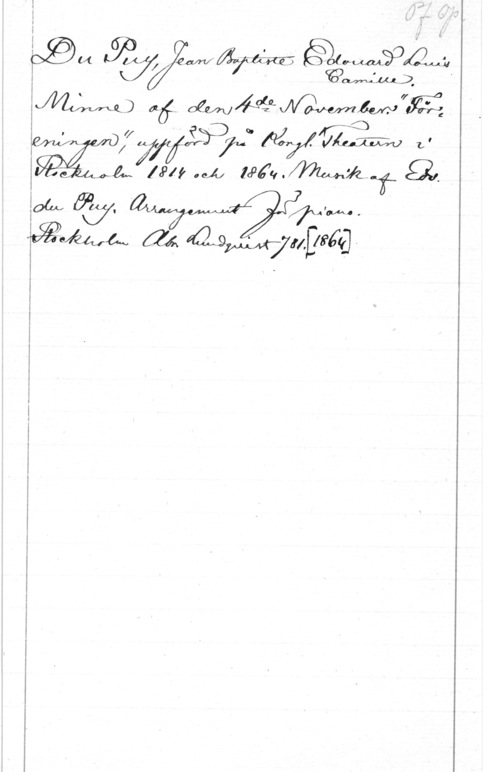 Pf Op.
Du Puy, Jean Baptiste Edouard Louis
Camille.
Minne af den 4de November. "För-
eningen", uppförd på Kongl. Theatern i
Stockholm 1814 och 1864. Musik af Edv.
du Puy. Arrangement för piano.
Stockholm Abr. Lundquist 781. [1864]